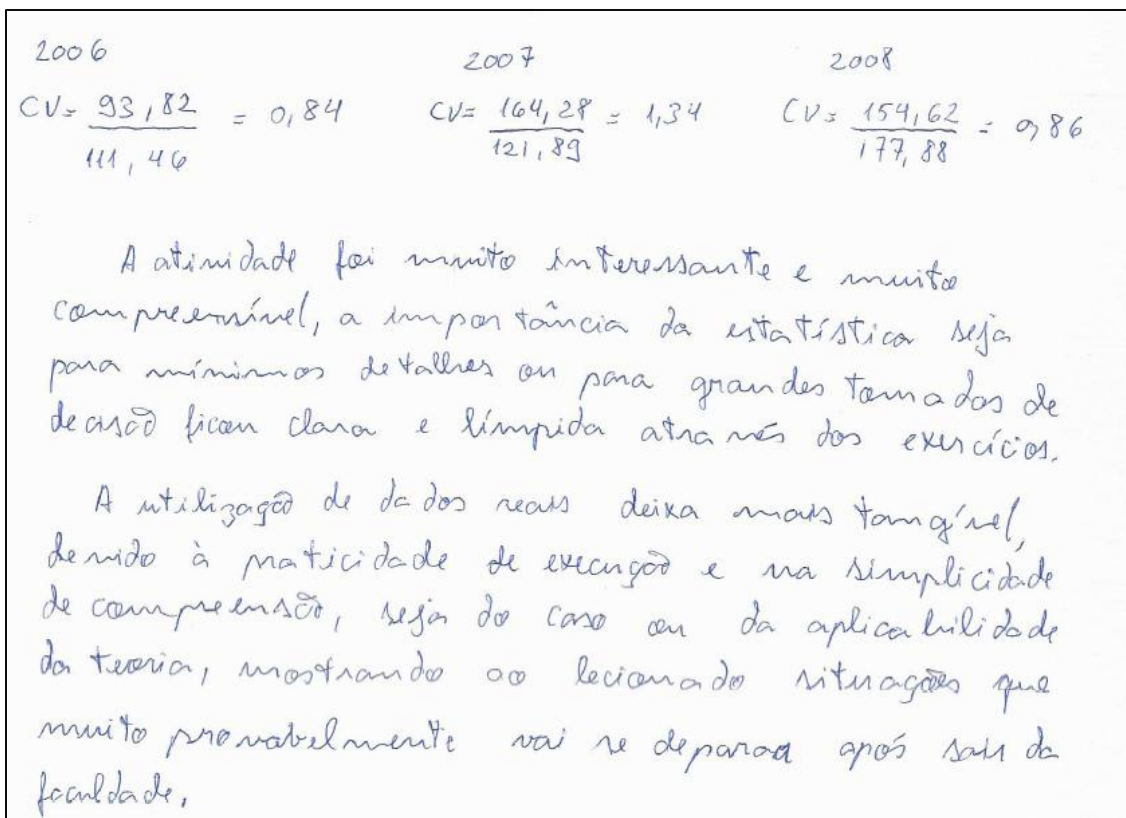 2006 2007 2008
CV= 93,82 / 111,46 = 0,84 CV= 164,28 / 121,89 = 1,34 CV= 154,62 / 177,88 = 0,86
A atividade foi muito interessante e muito
compreensível, a importância da estatística seja
para mínimos detalhes ou para grandes tomadas de
decisão ficou clara e límpida através dos exercícios.
A utilização de dados reais deixa mais tangível,
devido à praticidade de execução e na simplicidade
de compreensão, seja do caso ou da aplicabilidade
da teoria, mostrando ao lecionado situações que
muito provabelmente vai se deparar após sair da
faculdade.